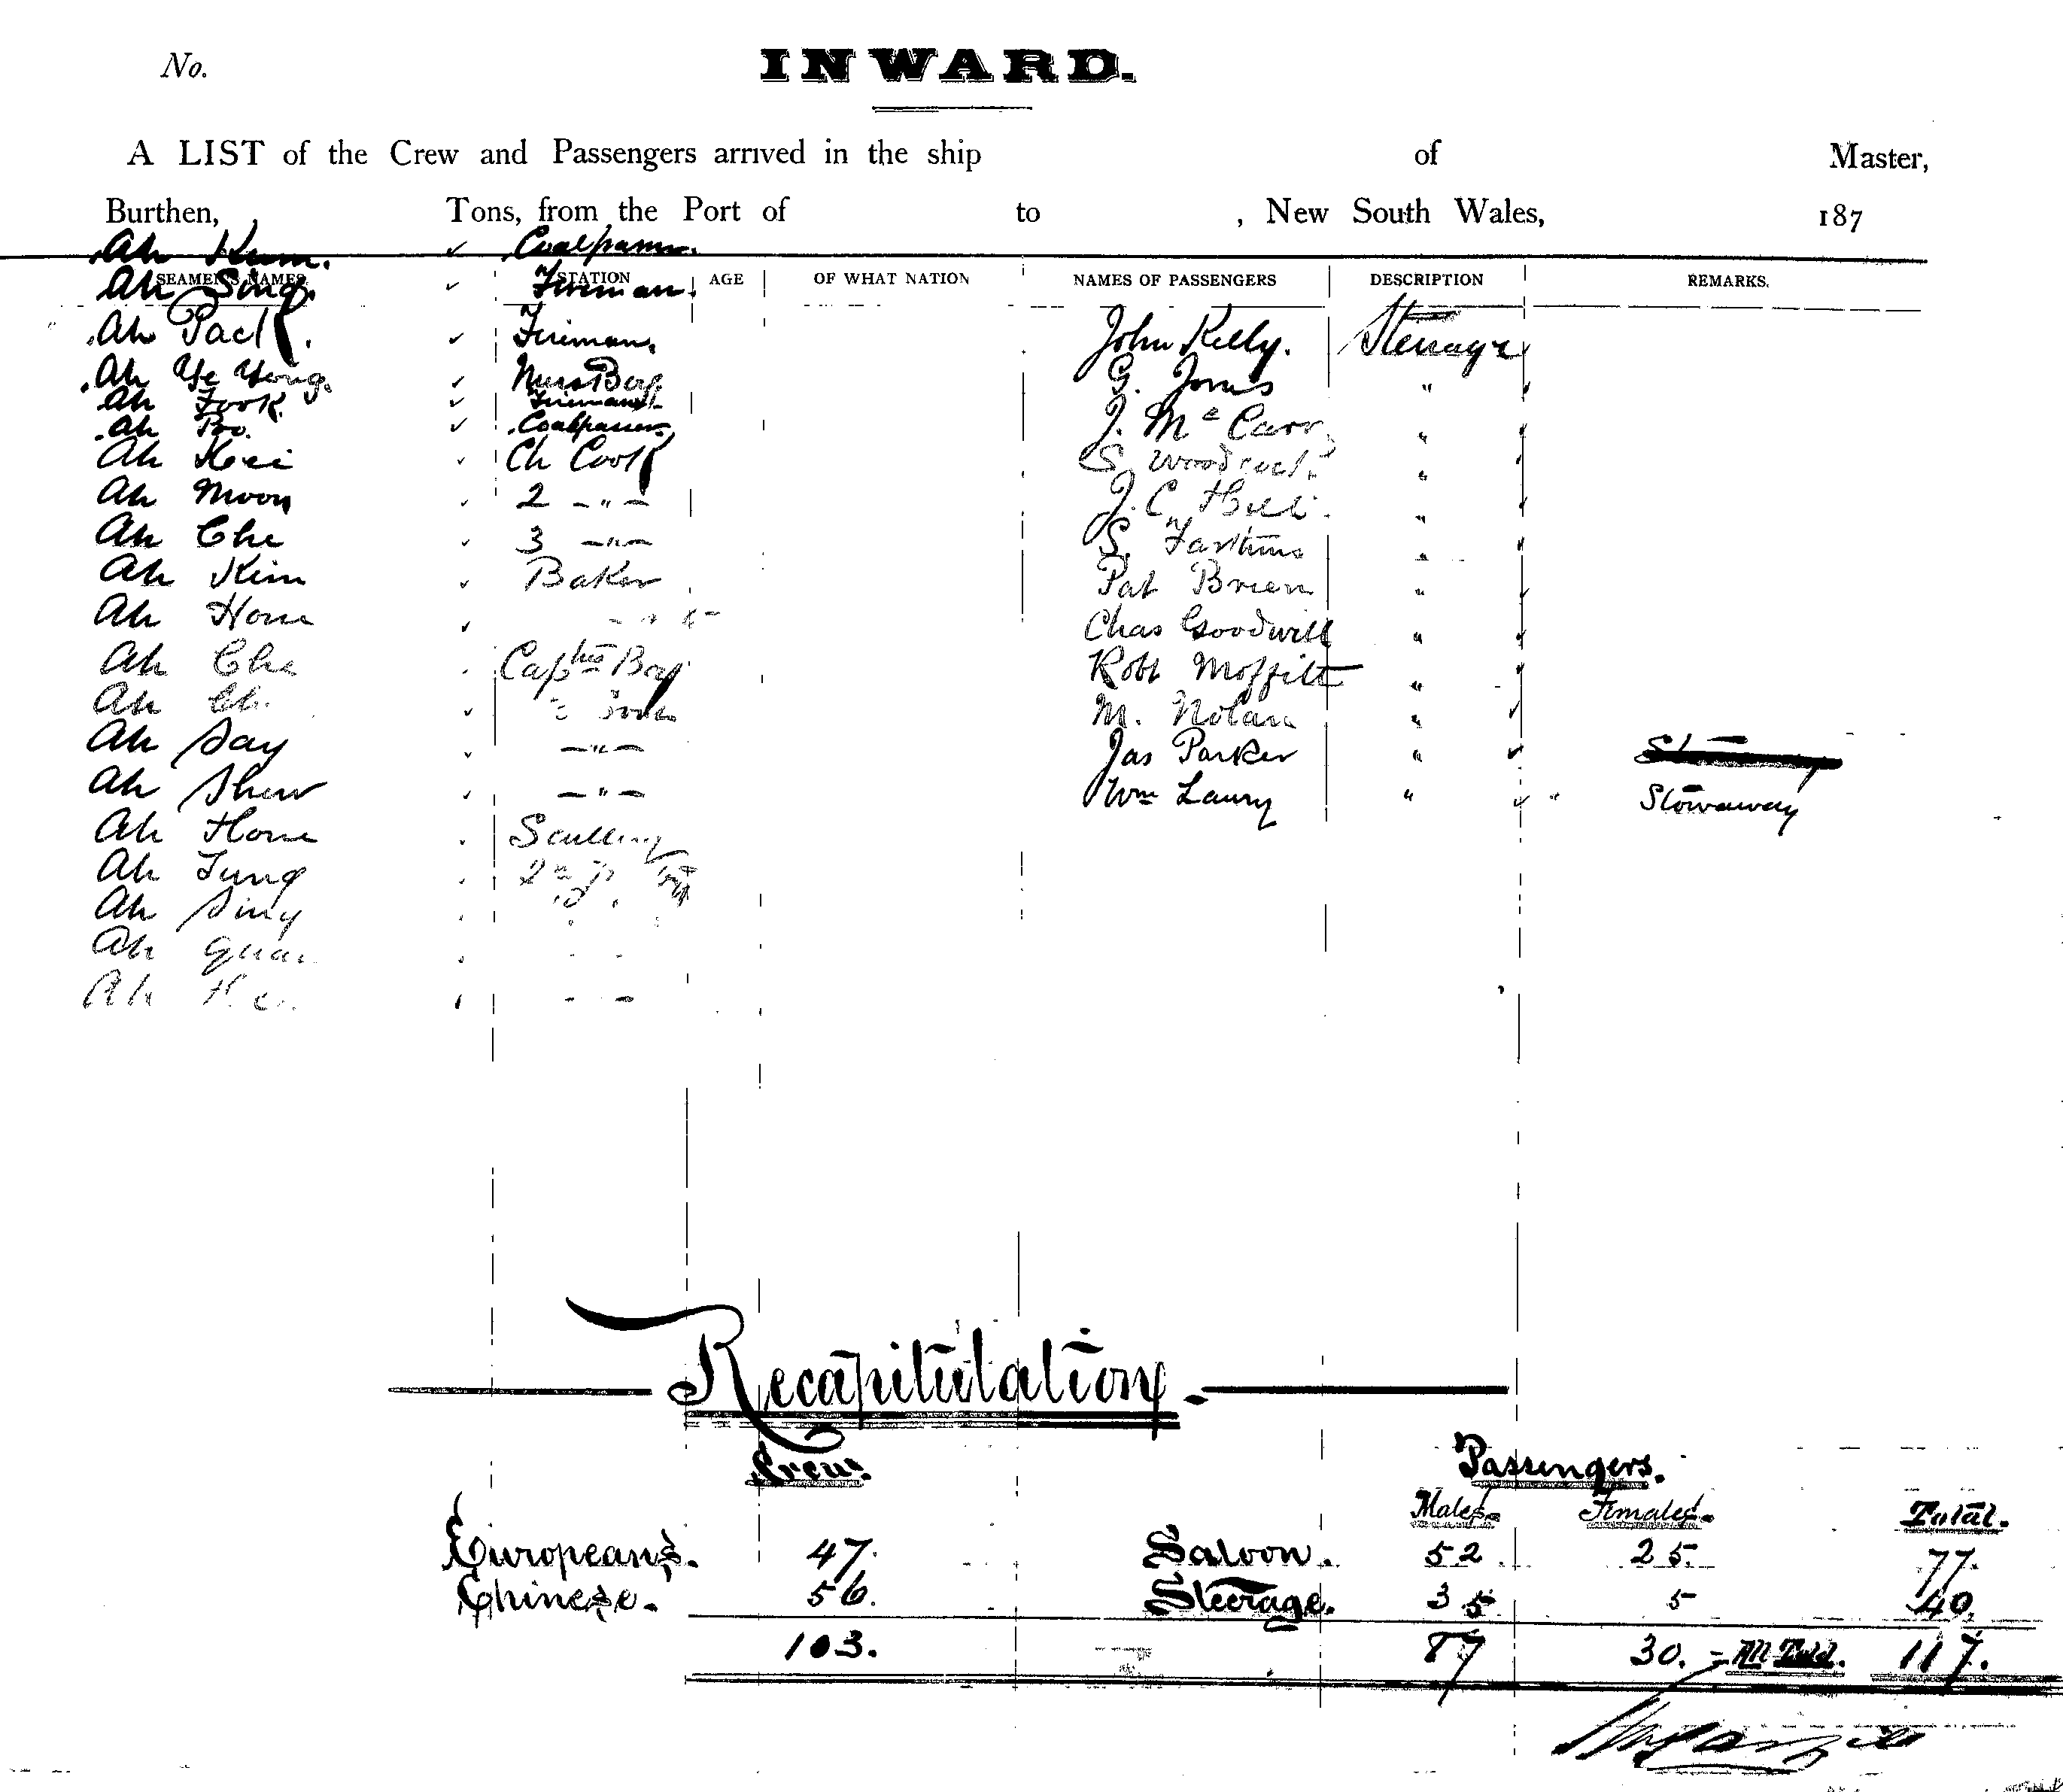 No.
INWARD.
A LIST of the Crew and Passengers arrived in the ship of Master,
Burthen, Tons, from the Port of to , New South Wales, 187
Ah Kum. Coalpasser.
SEAMEN'S NAMES. STATION AGE OF WHAT NATION NAMES OF PASSENGERS DESCRIPTION REMARKS.
Ah Sing. Fireman.
Ah Pack. Fireman. John Kelly. Steerage
Ah Ye Yong. Boy. G. Jones "
Ah Fook. Fireman.
Ah Poo. Coalpasser. J. Mc Carr "
Ah Kei Ch Cook S. Woodcock "
Ah Moon 2 - " - J. C. "
Ah Che 3 - " - S. "
Ah Kim Baker Pat Brien "
Ah Hone Chas Goodwill "
Ah Che Capt'ns Boy Robt Moffitt "
Ah M. Nolan "
Ah Say - " - Jas Parker "
Ah Shew - " - Wm Laury " " Stowaway
Ah Hone
Ah Tung
Ah Sing
Ah Quan
Ah
Recapitulation.
Crew. Passengers.
Males. Females. Total.
Europeans. 47. Saloon. 52. 25. 77.
Chinese. 56. Steerage. 35 5 40.
103. 87 30. - All Told. 117.